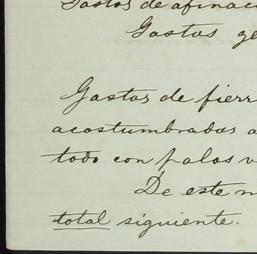 Gastos de afinaci
Gastos ge
Gastos de fierr
acostumbradas a
todo con palas v
De este m
total siguiente.